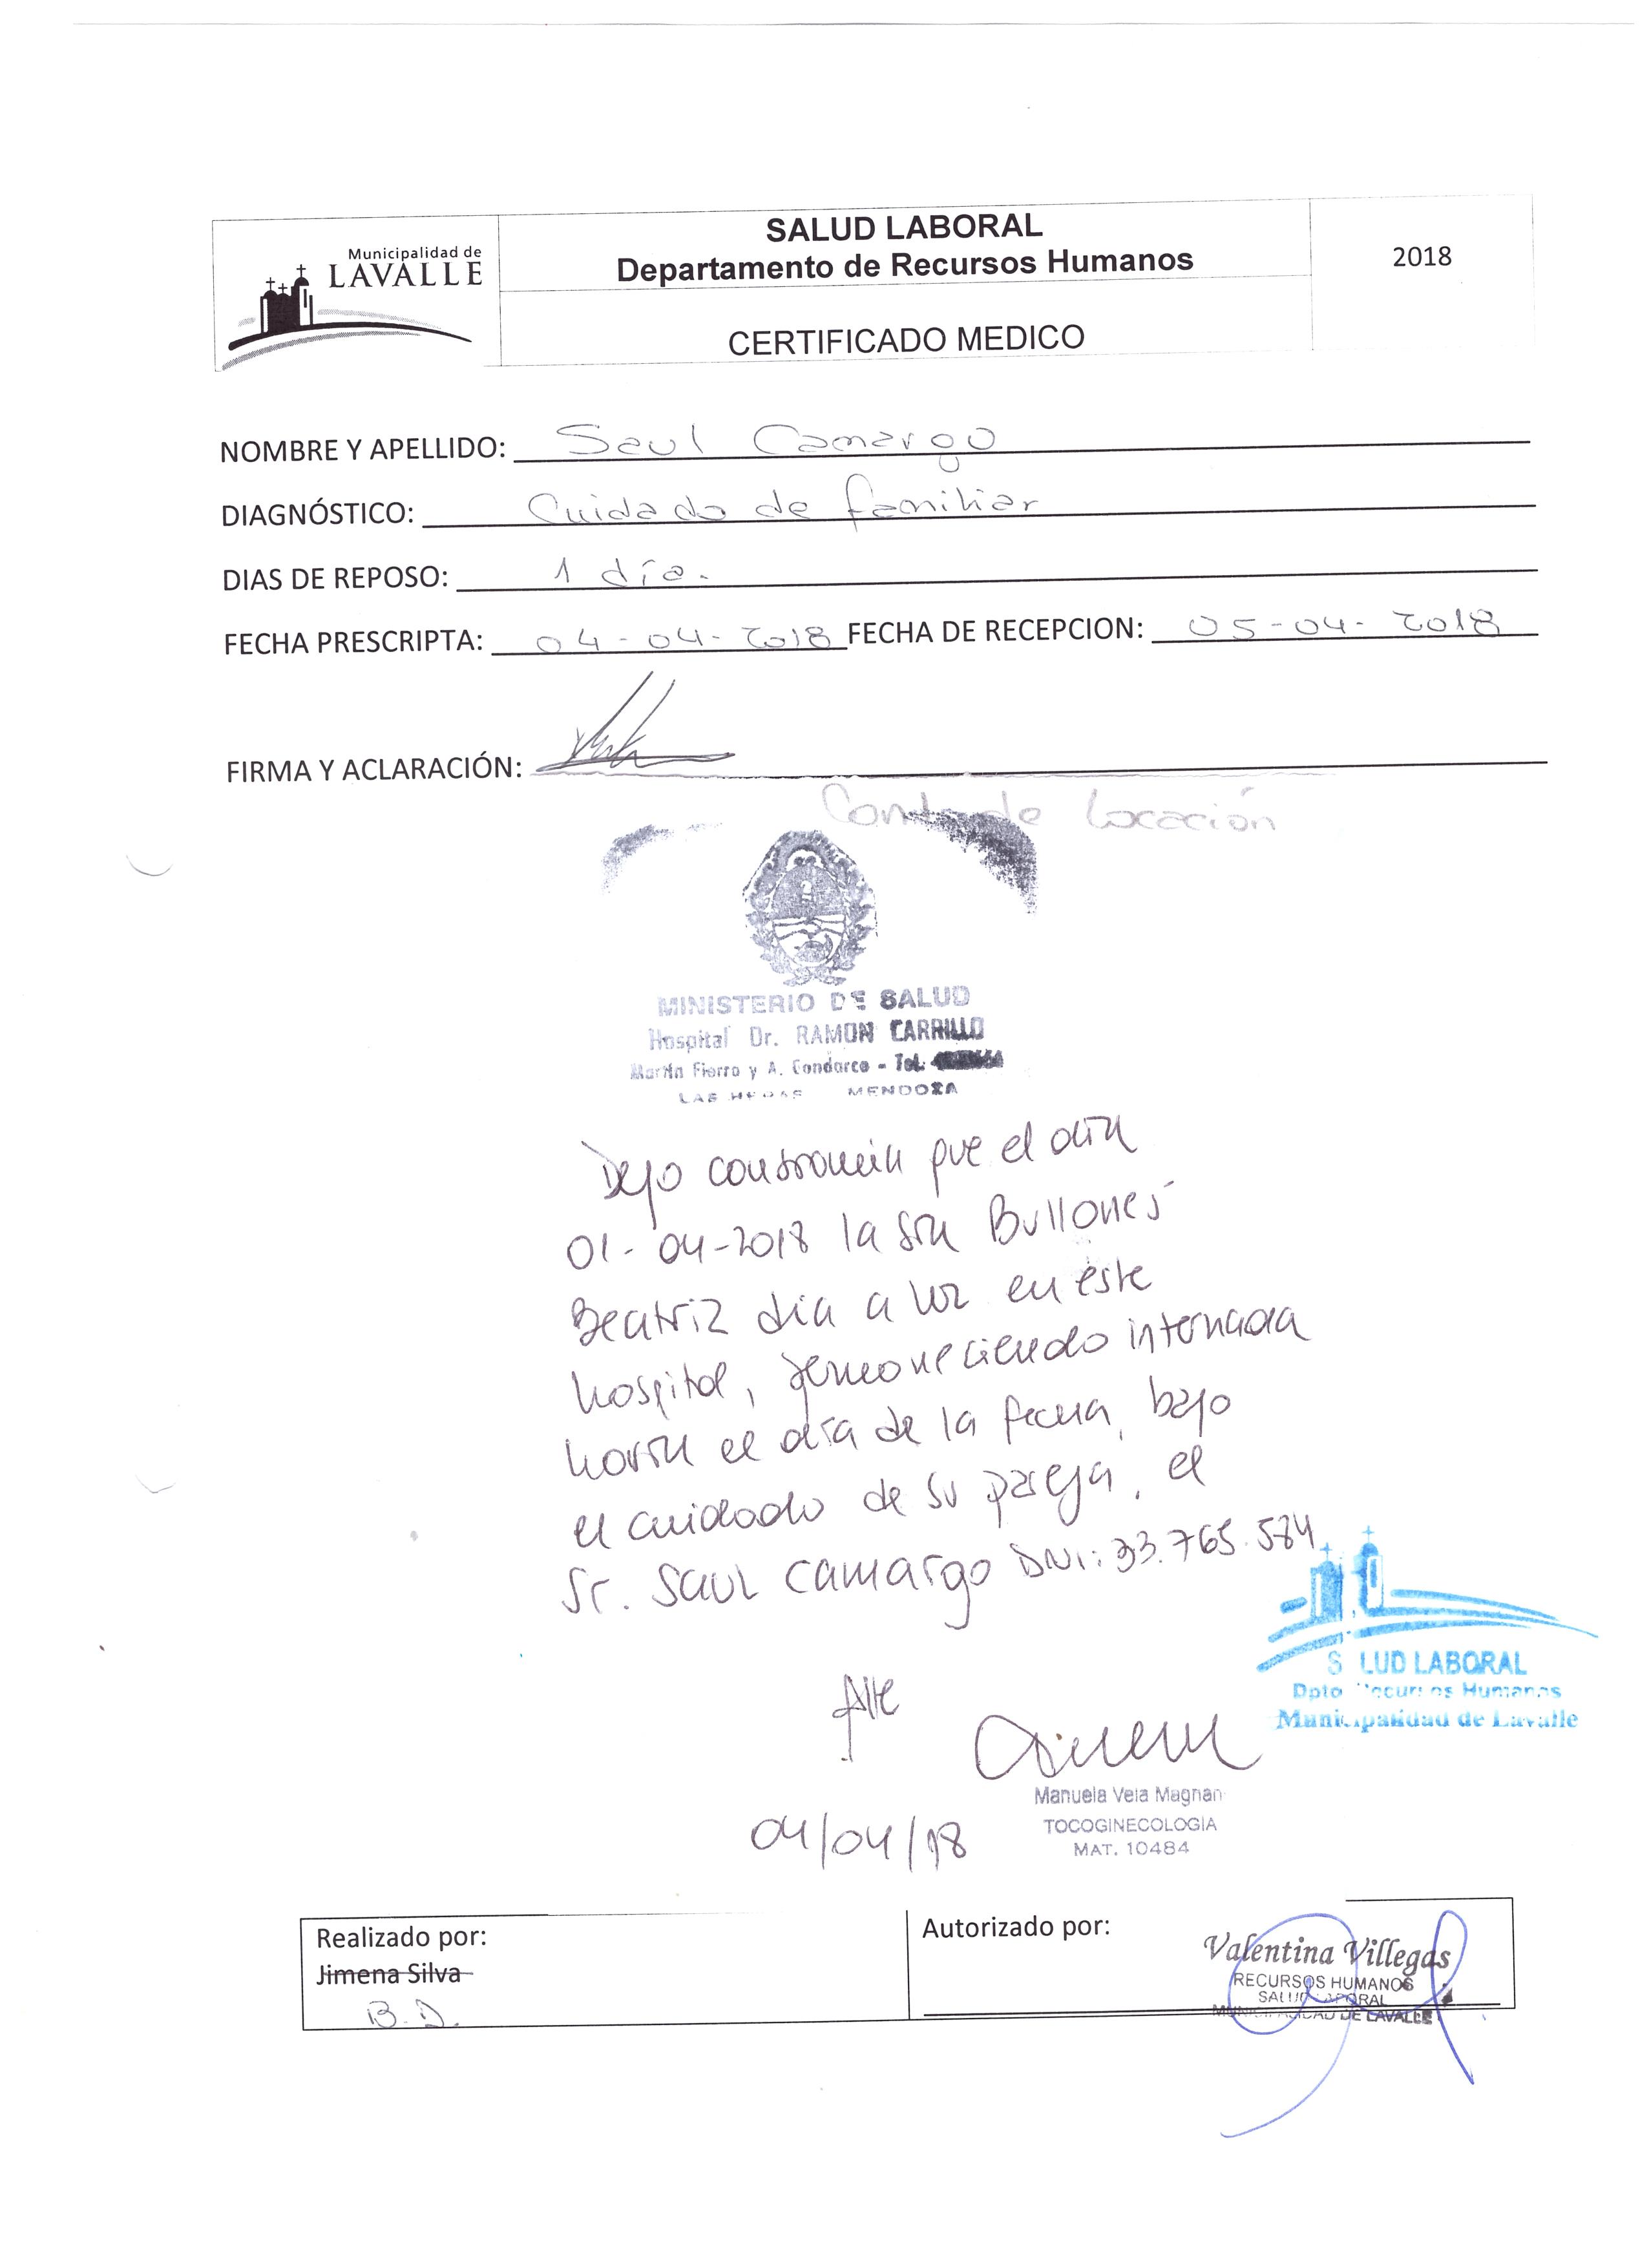 Municipalidad de
LAVALLE
SALUD LABORAL
Departamento de Recursos Humanos
CERTIFICADO MEDICO
2018
NOMBRE Y APELLIDO: Saul Camargo
DIAGNÓSTICO: Cuidado de familiar
DIAS DE REPOSO: 1 día.
FECHA PRESCRIPTA: 04-04-2018 FECHA DE RECEPCION: 05-04-2018
FIRMA Y ACLARACIÓN:
de Locación
MINISTERIO DE SALUD
Hospital Dr. RAMON CARRILLO
Martín Fierro y A. Condarco - Tel.
LAS HERAS MENDOZA
Dejo constancia que el día
01-04-2018 la Sra Bullones
Beatriz dia a luz en éste
hospital, permaneciendo internada
hasta el día de la fecha, bajo
el cuidado de su pareja, el
Sr. Saul Camargo DNI: 33.765.584
Atte
SALUD LABORAL
Dpto Recursos Humanos
Municipalidad de Lavalle
Manuela Vela Magnan
TOCOGINECOLOGIA
MAT. 10484
04/04/18
Realizado por:
Jimena Silva
B.D.
Autorizado por:
Valentina Villegas
RECURSOS HUMANOS
SALUD LABORAL
MUNICIPALIDAD DE LAVALLE